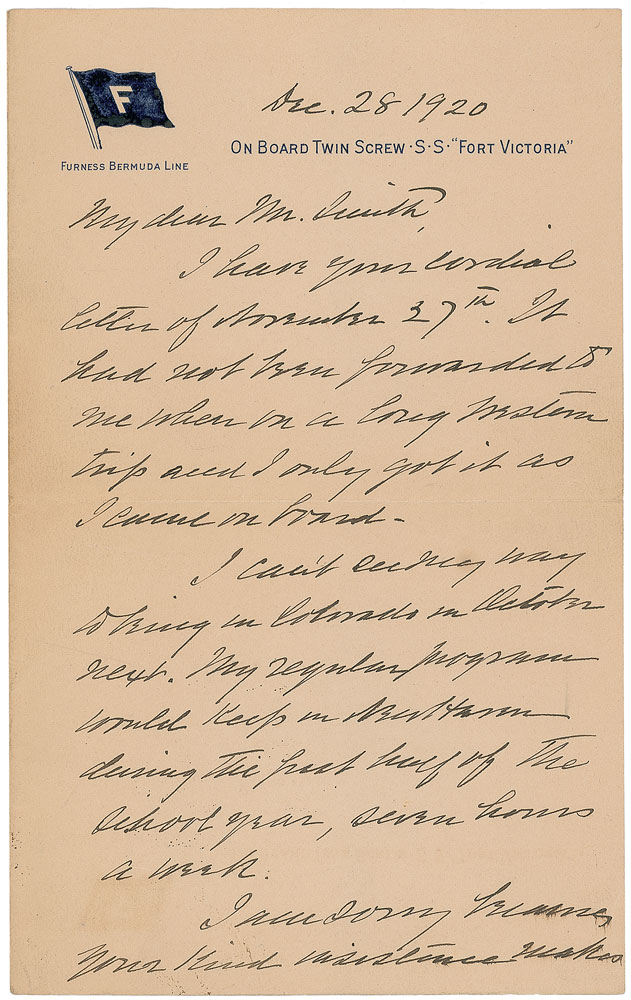 F
FURNESS BERMUDA LINE
Dec. 28 1920
ON BOARD TWIN SCREW · S · S · "FORT VICTORIA"
My dear Mr. Smith,
I have your cordial
letter of November 27th. It
had not been forwarded to
me when on a long Western
trip and I only got it as
I came on board -
I can't see my way
to being in Colorado in October
next. My regular program
would keep in New Haven
during the first half of the
school year, seven hours
a week.
I am sorry because
your kind insistence makes